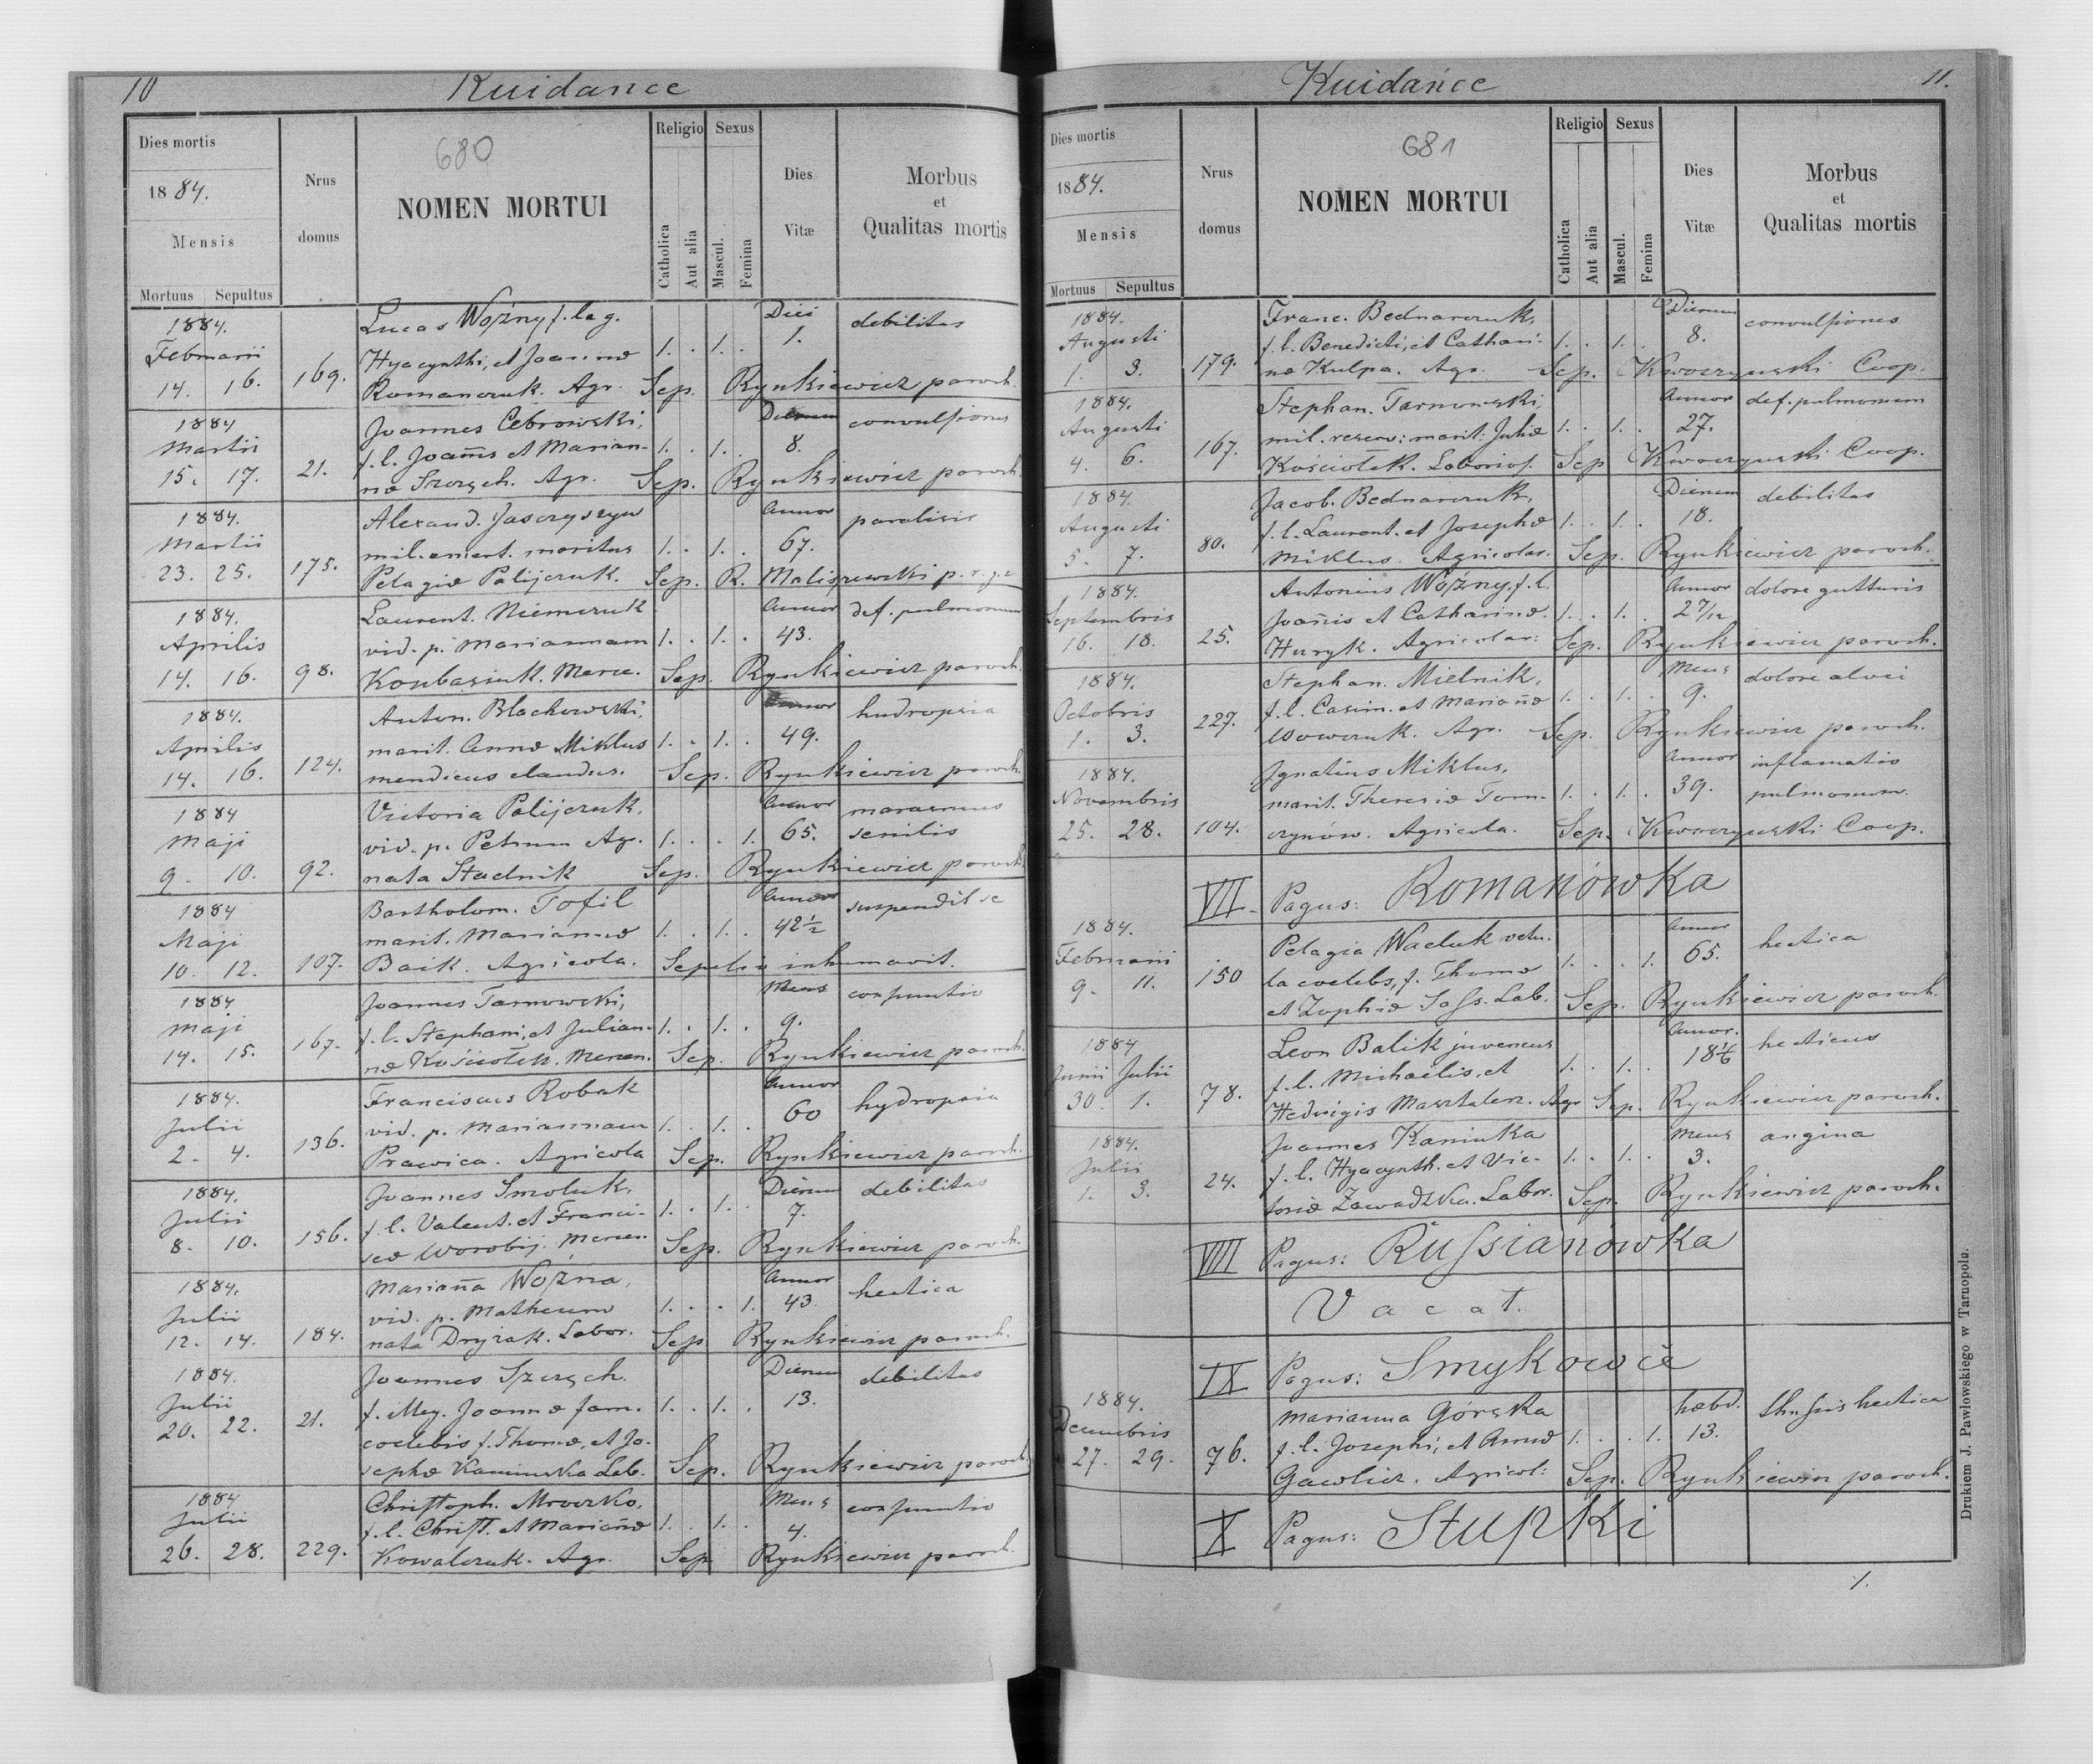 10
Kuidance
Dies mortis
1884.
Mensis
Mortuus Sepultus
Nrus domus
680
NOMEN MORTUI
Religio
Catholica
Aut alia
Sexus
Mascul.
Femina
Dies Vitæ
Morbus
et
Qualitas mortis
1884. Lucas Woźny f. leg. Diei debilitas
Februarii Hyacynthi, et Joannæ 1. . 1. . 1.
14. 16. 169. Romanczuk. Agr. Sep. Rynkiewicz paroch.
1884 Joannes Cebrowski, Dierum convulsiones
Martii f. l. Joañis et Marian- 1. . 1. . 8.
15. 17. 21. næ Szersch. Agr. Sep. Rynkiewicz paroch.
1884. Alexand. Jasczyszyn Annor paralisis
Martii mil. emerit. maritus 1. . 1. . 67.
23. 25. 175. Pelagiæ Palijczuk. Sep. R. Maliszewski p. r. g. c
1884. Laurent. Niemczuk Annor def. pulmonum
Aprilis vid. p. Mariannam 1. . 1. . 43.
14. 16. 98. Konbasiuk. Merce. Sep. Rynkiewicz paroch.
1884. Anton. Blachowski, Annor hudropsia
Aprilis marit. Annæ Miklus 1. . 1. . 49.
14. 16. 124. mendicus claudus. Sep. Rynkiewicz paroch.
1884 Victoria Palijczuk, Annor marasmus
Maji vid. p. Petrum Ag. 1. . . 1. 65. senilis
9. 10. 92. nata Stadnik Sep. Rynkiewicz paroch.
1884 Bartholom. Tofil Annor suspendit se
Maji marit. Mariannæ 1. . 1. . 42½
10. 12. 107. Baik. Agricola. inhumavit.
1884 Joannes Tarnowski, Mens
Maji f. l. Stephani, et Julian- 1. . 1. . 9.
14. 15. 167. næ Kościołek. Mercen. Sep. Rynkiewicz paroch.
1884. Franciscus Robak Annor hydropsia
Julii vid. p. Mariannam 1. . 1. . 60
2. 4. 136. Prawica. Agricola Sep. Rynkiewicz paroch.
1884. Joannes Smoluk, Dierum debilitas
Julii f. l. Valent. et Franci- 1. . 1. . 7.
8. 10. 156. scæ Worobij. Mercen Sep. Rynkiewicz paroch.
1884. Mariaña Woźna, Annor hectica
Julii vid. p. Matheum 1. . . 1. 43.
12. 14. 184. nata Dryzak. Labor. Sep Rynkiewicz paroch.
1884. Joannes Szersch. Dierum debilitas
Julii f. illeg. Joannæ fam. 1. . 1. . 13.
20. 22. 21. coelebis f. Thomæ, et Jo-
sephæ Kaminska Lab. Sep. Rynkiewicz paroch.
1884 Christoph. Mroczko, Mens
Julii f. l. Christ. et Mariañæ 1. . 1. . 4.
26. 28. 229. Kowalczuk. Agr. Sep Rynkiewicz paroch.
Kuidańce
11.
Dies mortis
1884.
Mensis
Mortuus Sepultus
Nrus domus
681
NOMEN MORTUI
Religio
Catholica
Aut alia
Sexus
Mascul.
Femina
Dies Vitæ
Morbus
et
Qualitas mortis
1884. Franc. Bednarczuk, Dierum convulsiones
Augusti f. l. Benedicti, et Cathari- 1. . 1. . 8.
1. 3. 179. næ Kulpa. Agr. Sep. Kwoczyński Coop.
1884. Stephan. Tarnowski, Annor def. pulmonum
Augusti mil. reserv: marit: Juliæ 1. . 1. . 27.
4. 6. 167. Kościołek. Laborios. Sep Kwoczyński Coop.
1884 Jacob. Bednarczuk, Dierum debilitas
Augusti f. l. Laurent. et Josephæ 1. . 1. . 18.
5. 7. 80. Miklus. Agricolar. Sep. Rynkiewicz paroch.
1884. Antonius Woźny, f. l. Annor dolore gutturis
Septembris Joañis et Catharinæ. 1. . 1. . 2 7/12
16. 18. 25. Huryk. Agricolar: Sep. Rynkiewicz paroch.
1884. Stephan. Mielnik, Mens dolore alvei
Octobris f. l. Casim. et Mariañæ 1. . 1. . 9.
1. 3. 227. Wowczuk. Agr. Sep. Rynkiewicz paroch.
1884. Ignatius Miklus, Annor inflamatio
Novembris marit. Theresiæ Tom- 1. . 1. . 39. pulmonum.
25. 28. 104. czynów. Agricola. Sep. Kwoczyński Coop.
VII. Pagus: Romanówka
1884. Pelagia Wacluk vetu- Annor hectica
Februarii la coelebs, f. Thomæ 1. . . 1. 65.
9. 11. 150 et Zophiæ Sass. Lab. Sep. Rynkiewicz paroch.
1884 Leon Balik juvencus Annor. hecticus
Junii Julii f. l. Michaëlis, et 1. . 1. . 18 1/6
30. 1. 78. Hedvigis Masztalerz. Agr Sep. Rynkiewicz paroch.
1884. Joannes Kaniuka Mens angina
Julii f. l. Hyacynth. et Vic- 1. . 1. . 3.
1. 3. 24. toriæ Zawadzka. Labor. Sep. Rynkiewicz paroch.
VIII Pagus: Russianówka
Vacat.
IX Pagus: Smykowce
1884. Marianna Górska hebd. hectica
Decembris f. l. Josephi, et Annæ 1. . . 1. 13.
27. 29. 76. Gawlicz. Agricol: Sep. Rynkiewicz paroch.
X Pagus: Stupki
1.
Drukiem J. Pawłowskiego w Tarnopolu.